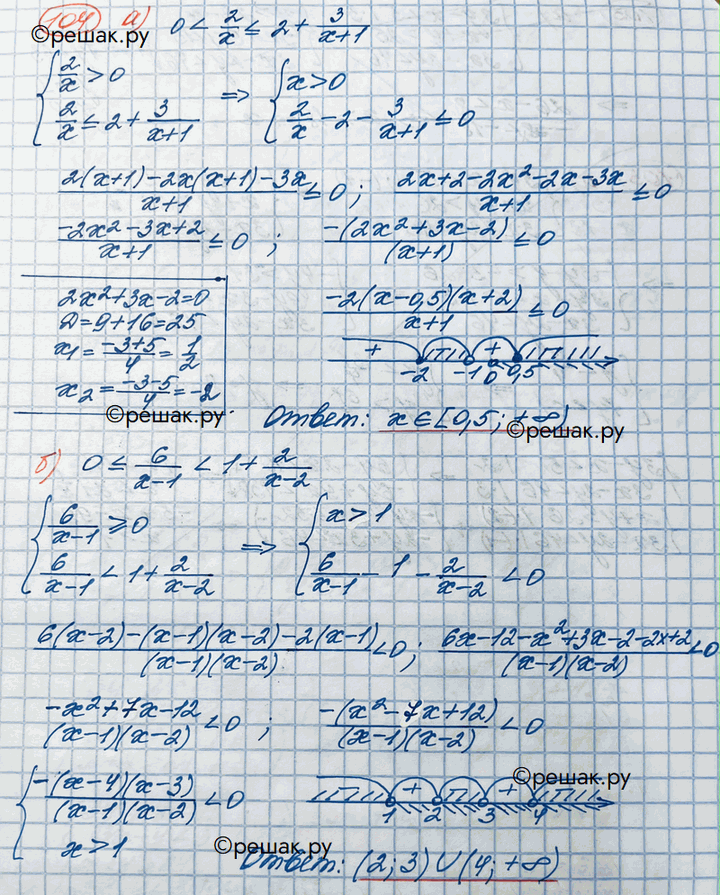 104 а) 0 < 2/x ≤ 2 + 3/(x+1)
©решак.ру ©решак.ру
{ 2/x > 0 ⇒ { x > 0
{ 2/x ≤ 2 + 3/(x+1) { 2/x - 2 - 3/(x+1) ≤ 0
(2(x+1) - 2x(x+1) - 3x)/(x+1) ≤ 0 ; (2x+2-2x²-2x-3x)/(x+1) ≤ 0
(-2x²-3x+2)/(x+1) ≤ 0 ; (-(2x²+3x-2))/(x+1) ≤ 0
2x²+3x-2=0
Д=9+16=25
x₁ = (-3+5)/4 = 1/2
x₂ = (-3-5)/4 = -2
(-2(x-0,5)(x+2))/(x+1) ≤ 0
+ +
-2 -1 0 0,5
©решак.ру
Ответ: x∈[0,5; +∞)
©решак.ру
б) 0 ≤ 6/(x-1) < 1 + 2/(x-2)
{ 6/(x-1) ≥ 0 ⇒ { x > 1
{ 6/(x-1) < 1 + 2/(x-2) { 6/(x-1) - 1 - 2/(x-2) < 0
(6(x-2)-(x-1)(x-2)-2(x-1))/((x-1)(x-2)) < 0 ; (6x-12-x²+3x-2-2x+2)/((x-1)(x-2)) < 0
(-x²+7x-12)/((x-1)(x-2)) < 0 ; (-(x²-7x+12))/((x-1)(x-2)) < 0
©решак.ру
{ (-(x-4)(x-3))/((x-1)(x-2)) < 0
{ x > 1
+ +
1 2 3 4
©решак.ру
Ответ: (2; 3)∪(4; +∞)